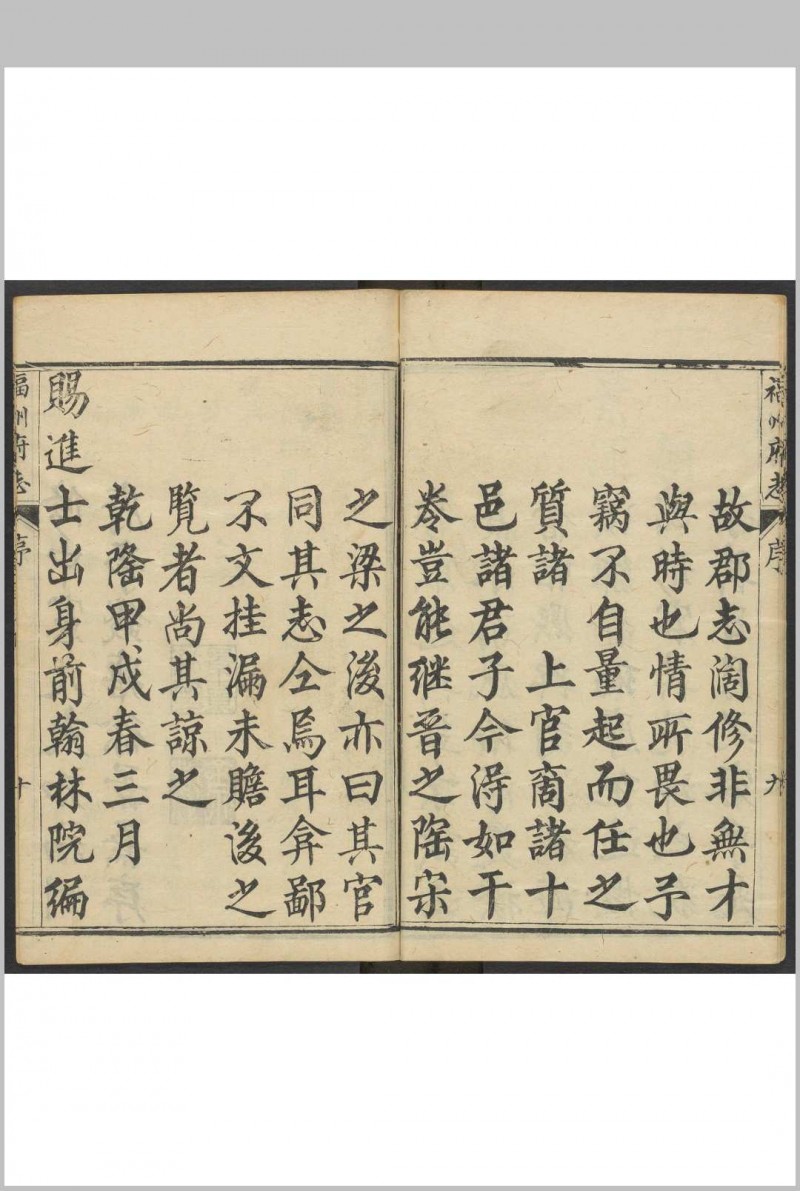 福州府志 序 九
故郡志闊修非無才
與時也情所畏也予
竊不自量起而任之
質諸 上官商諸十
邑諸君子今得如干
卷豈能继晉之陶宋
之梁之後亦曰其官
同其志仝焉耳弇鄙
不文挂漏未贍後之
覽者尚其諒之
乾隆甲戌春三月
賜進士出身前翰林院編
福州府志 序 十